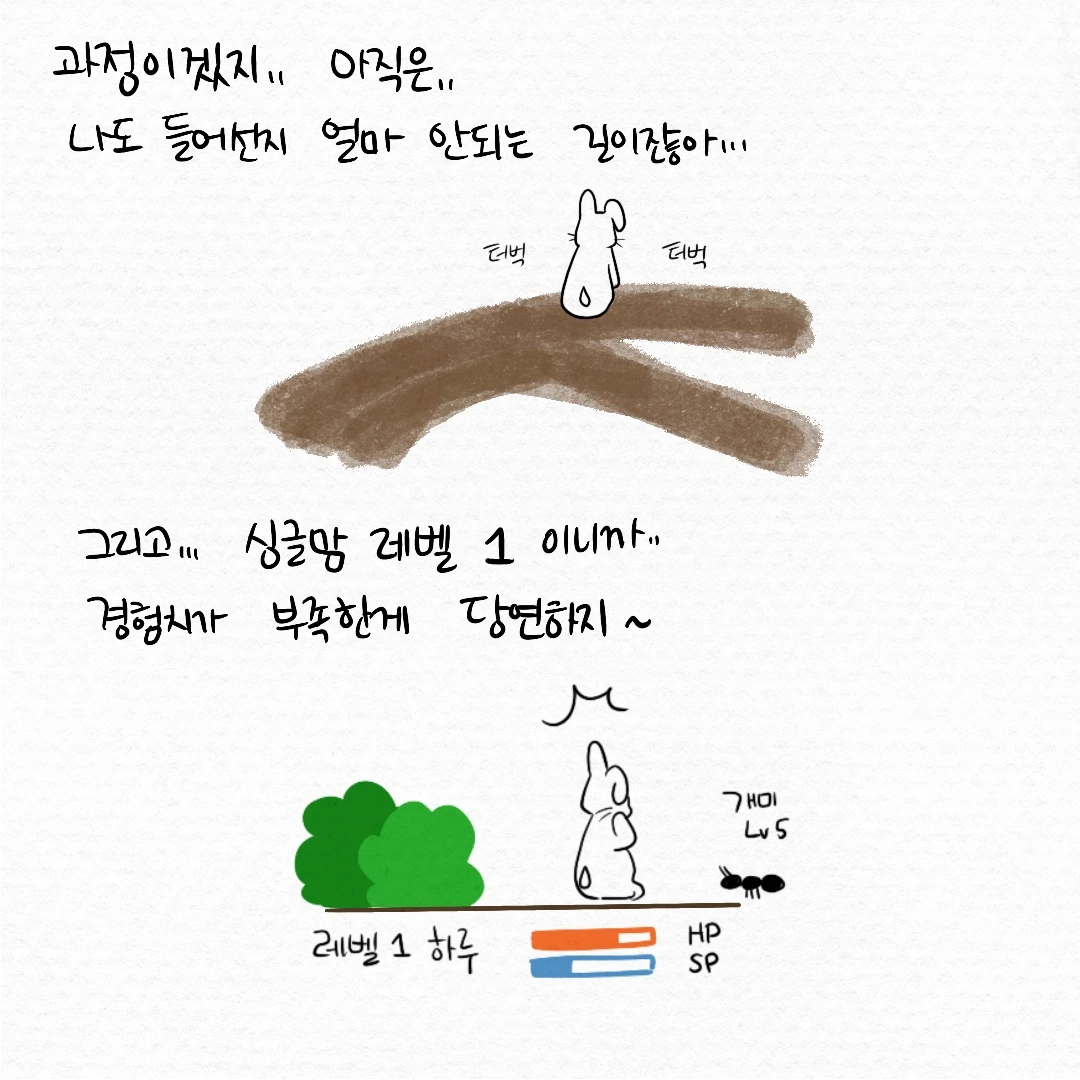 과정이겠지.. 아직은..
나도 들어선지 얼마 안되는 길이잖아...
터벅 터벅
그리고... 싱글맘 레벨 1 이니까..
경험치가 부족한게 당연하지~
개미
Lv 5
레벨 1 하루
HP
SP